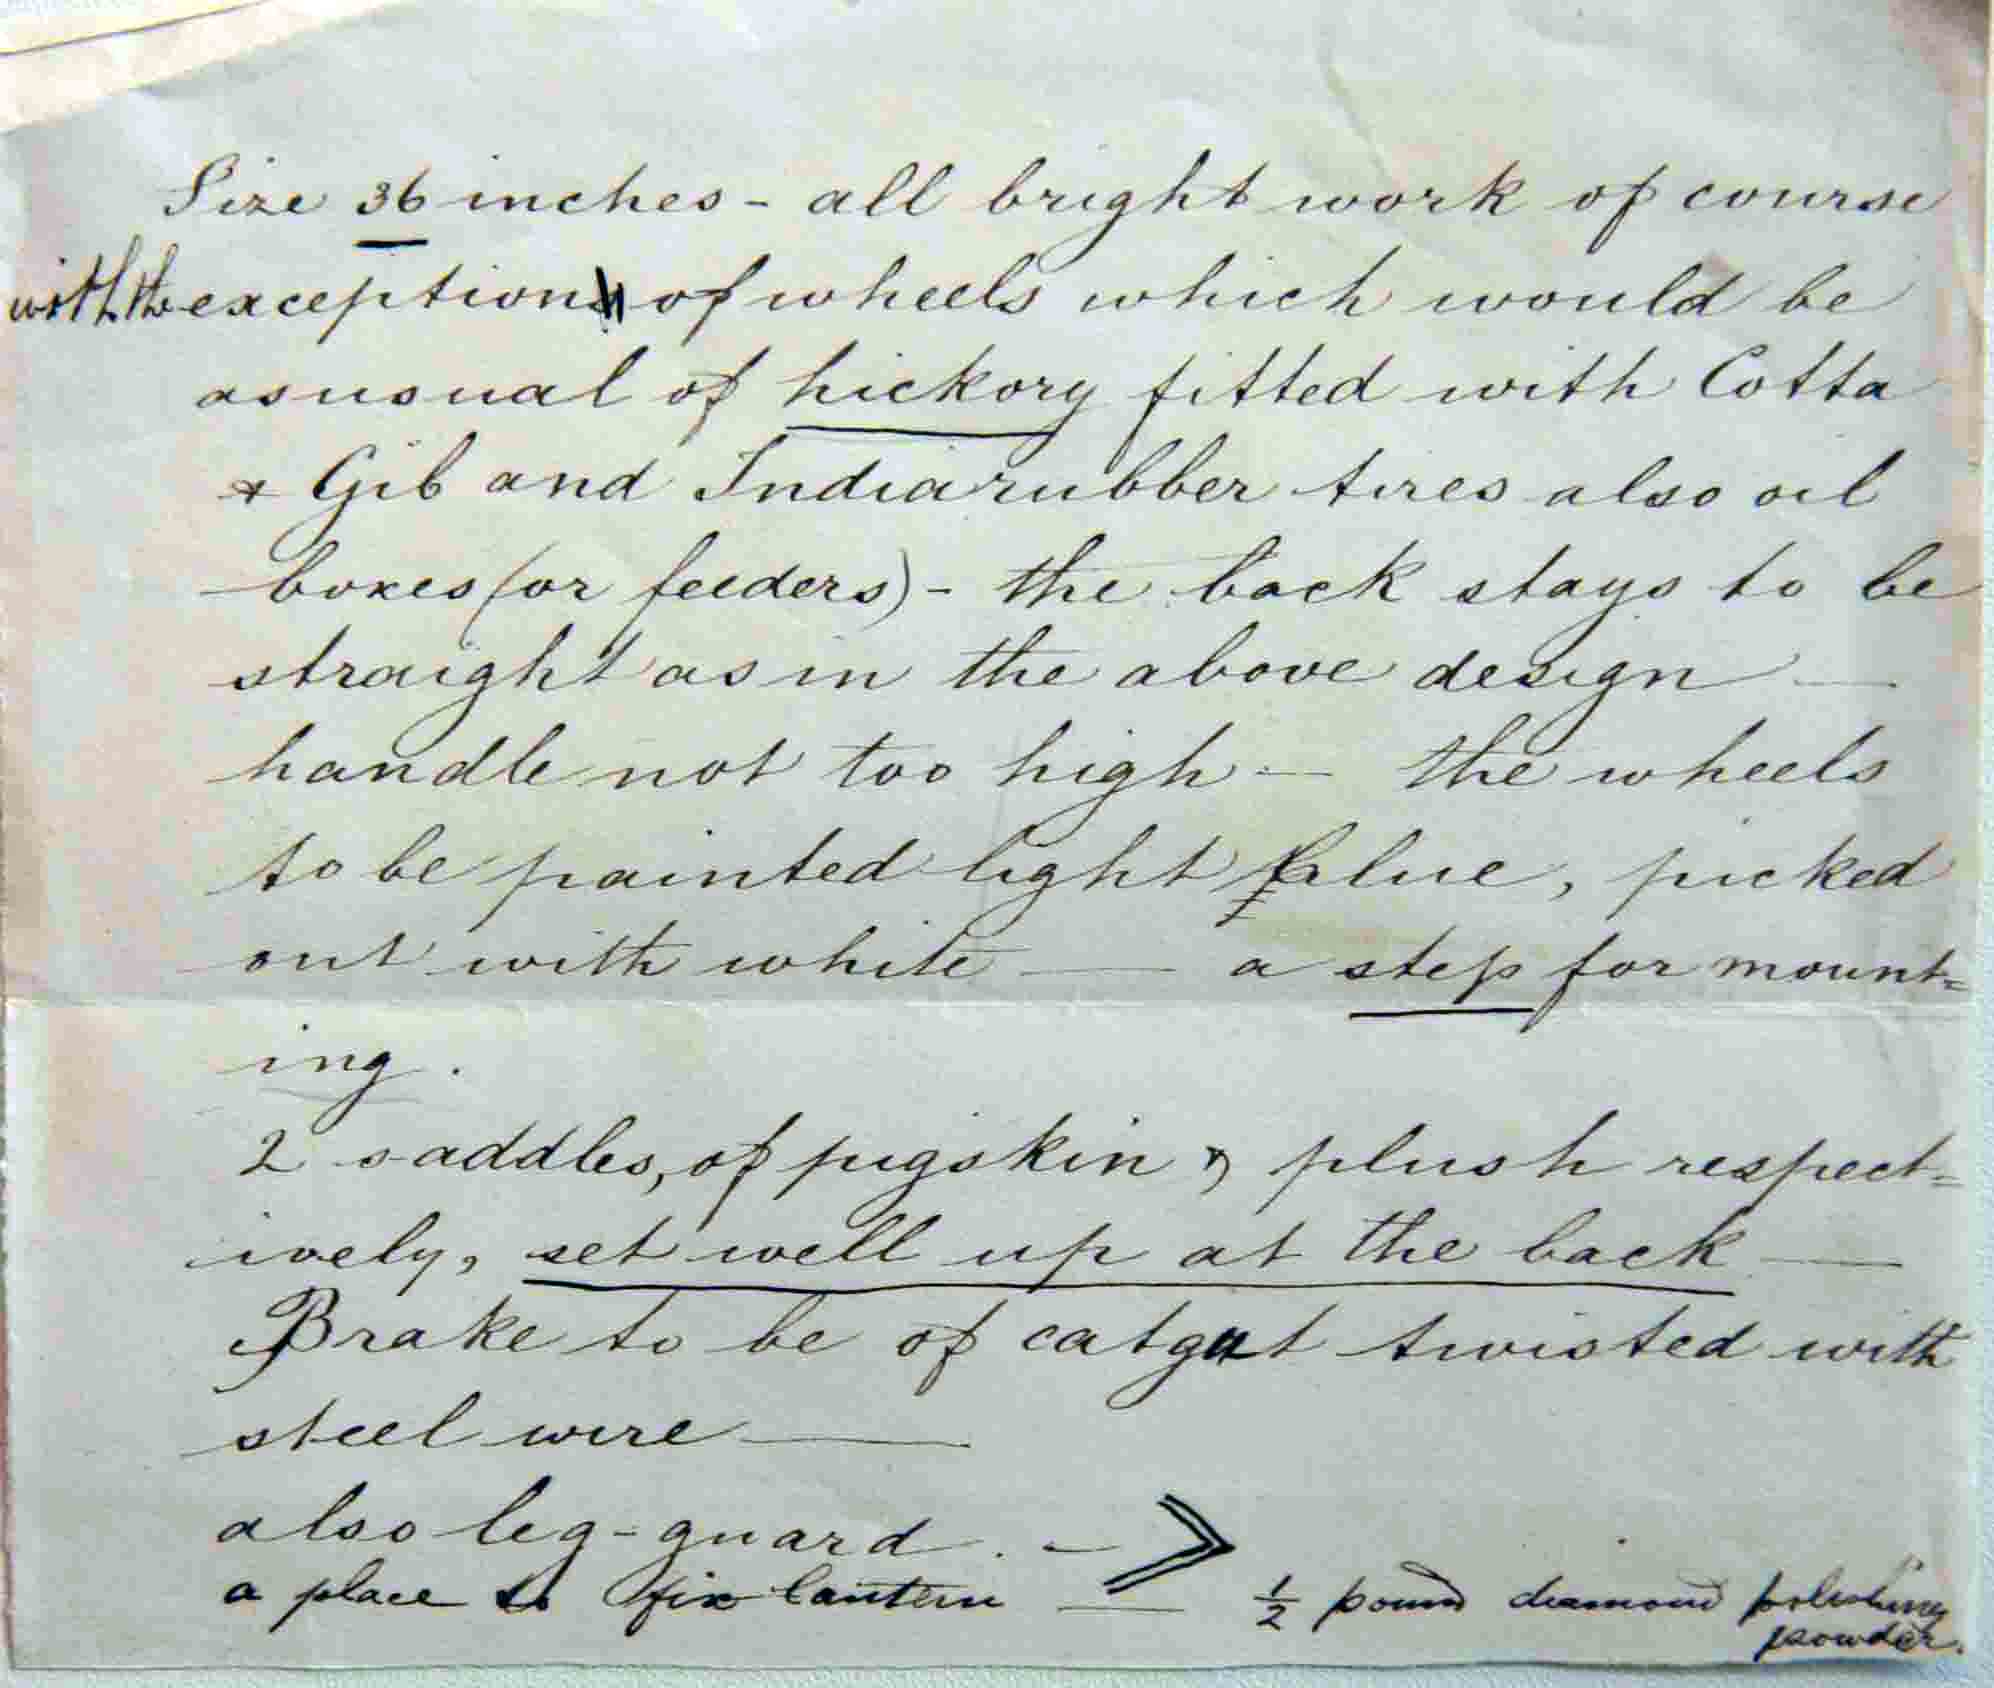 Size 36 inches - all bright work of course
with the exception of wheels which would be
as usual of hickory fitted with Cotta
& Gib and Indiarubber tires also oil
boxes (or feeders) - the back stays to be
straight as in the above design —
handle not too high — the wheels
to be painted light blue, picked
out with white — a step for mount=
ing.
2 saddles, of pigskin & plush respect=
ively, set well up at the back —
Brake to be of catgut twisted with
steel wire —
also leg-guard. —
a place to fix lantern — ½ pound diamond polishing
powder.